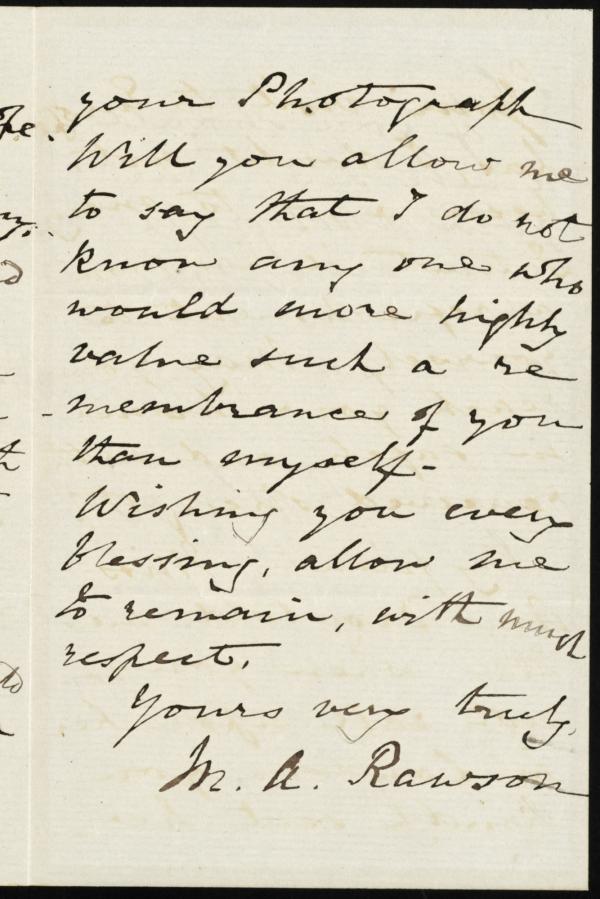 your Photograph
Will you allow me
to say that I do not
know any one who
would more highly
value such a re
-membrance of you
than myself-
Wishing you every
blessing, allow me
to remain, with much
respect.
Yours very truly,
M. A. Rawson